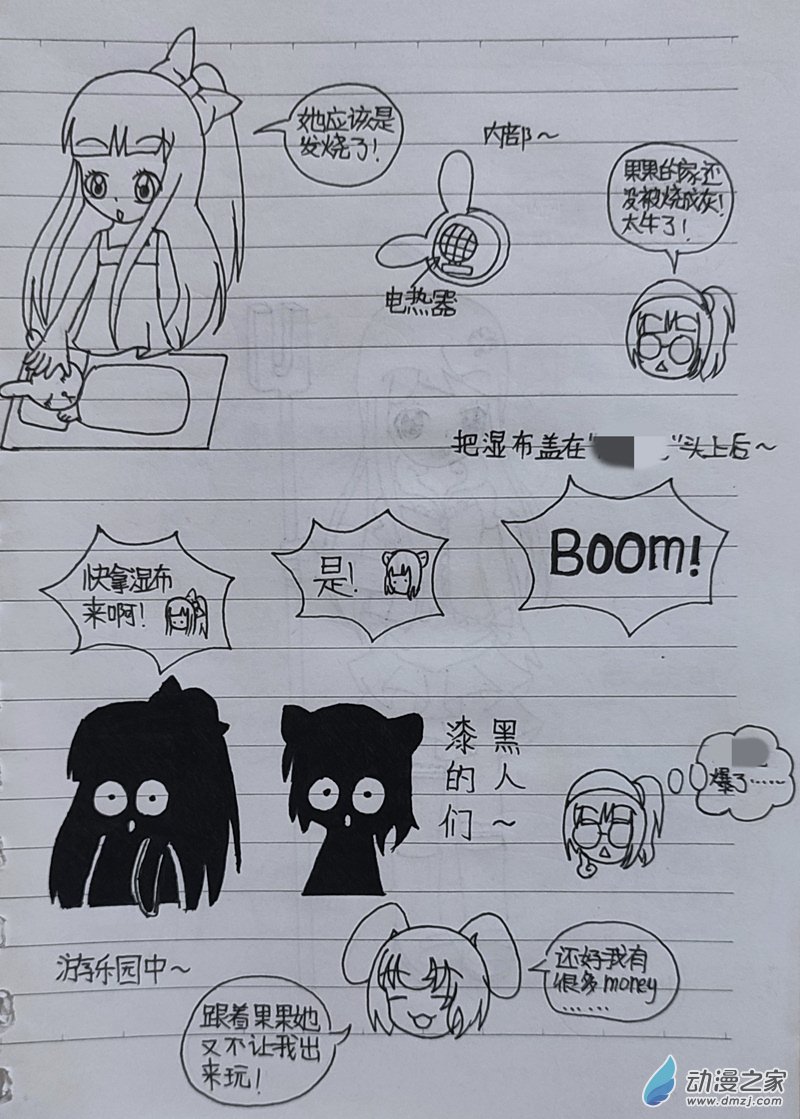 她应该是
发烧了！
内部～
果果的家还
没被烧成灰！
太牛了！
电热器
把湿布盖在“ ”头上后～
快拿湿布
来啊！
是！
BOOM!
漆黑
的人
们～
爆了……
游乐园中～
还好我有
很多money
……
跟着果果她
又不让我出
来玩！
动漫之家
www.dmzj.com